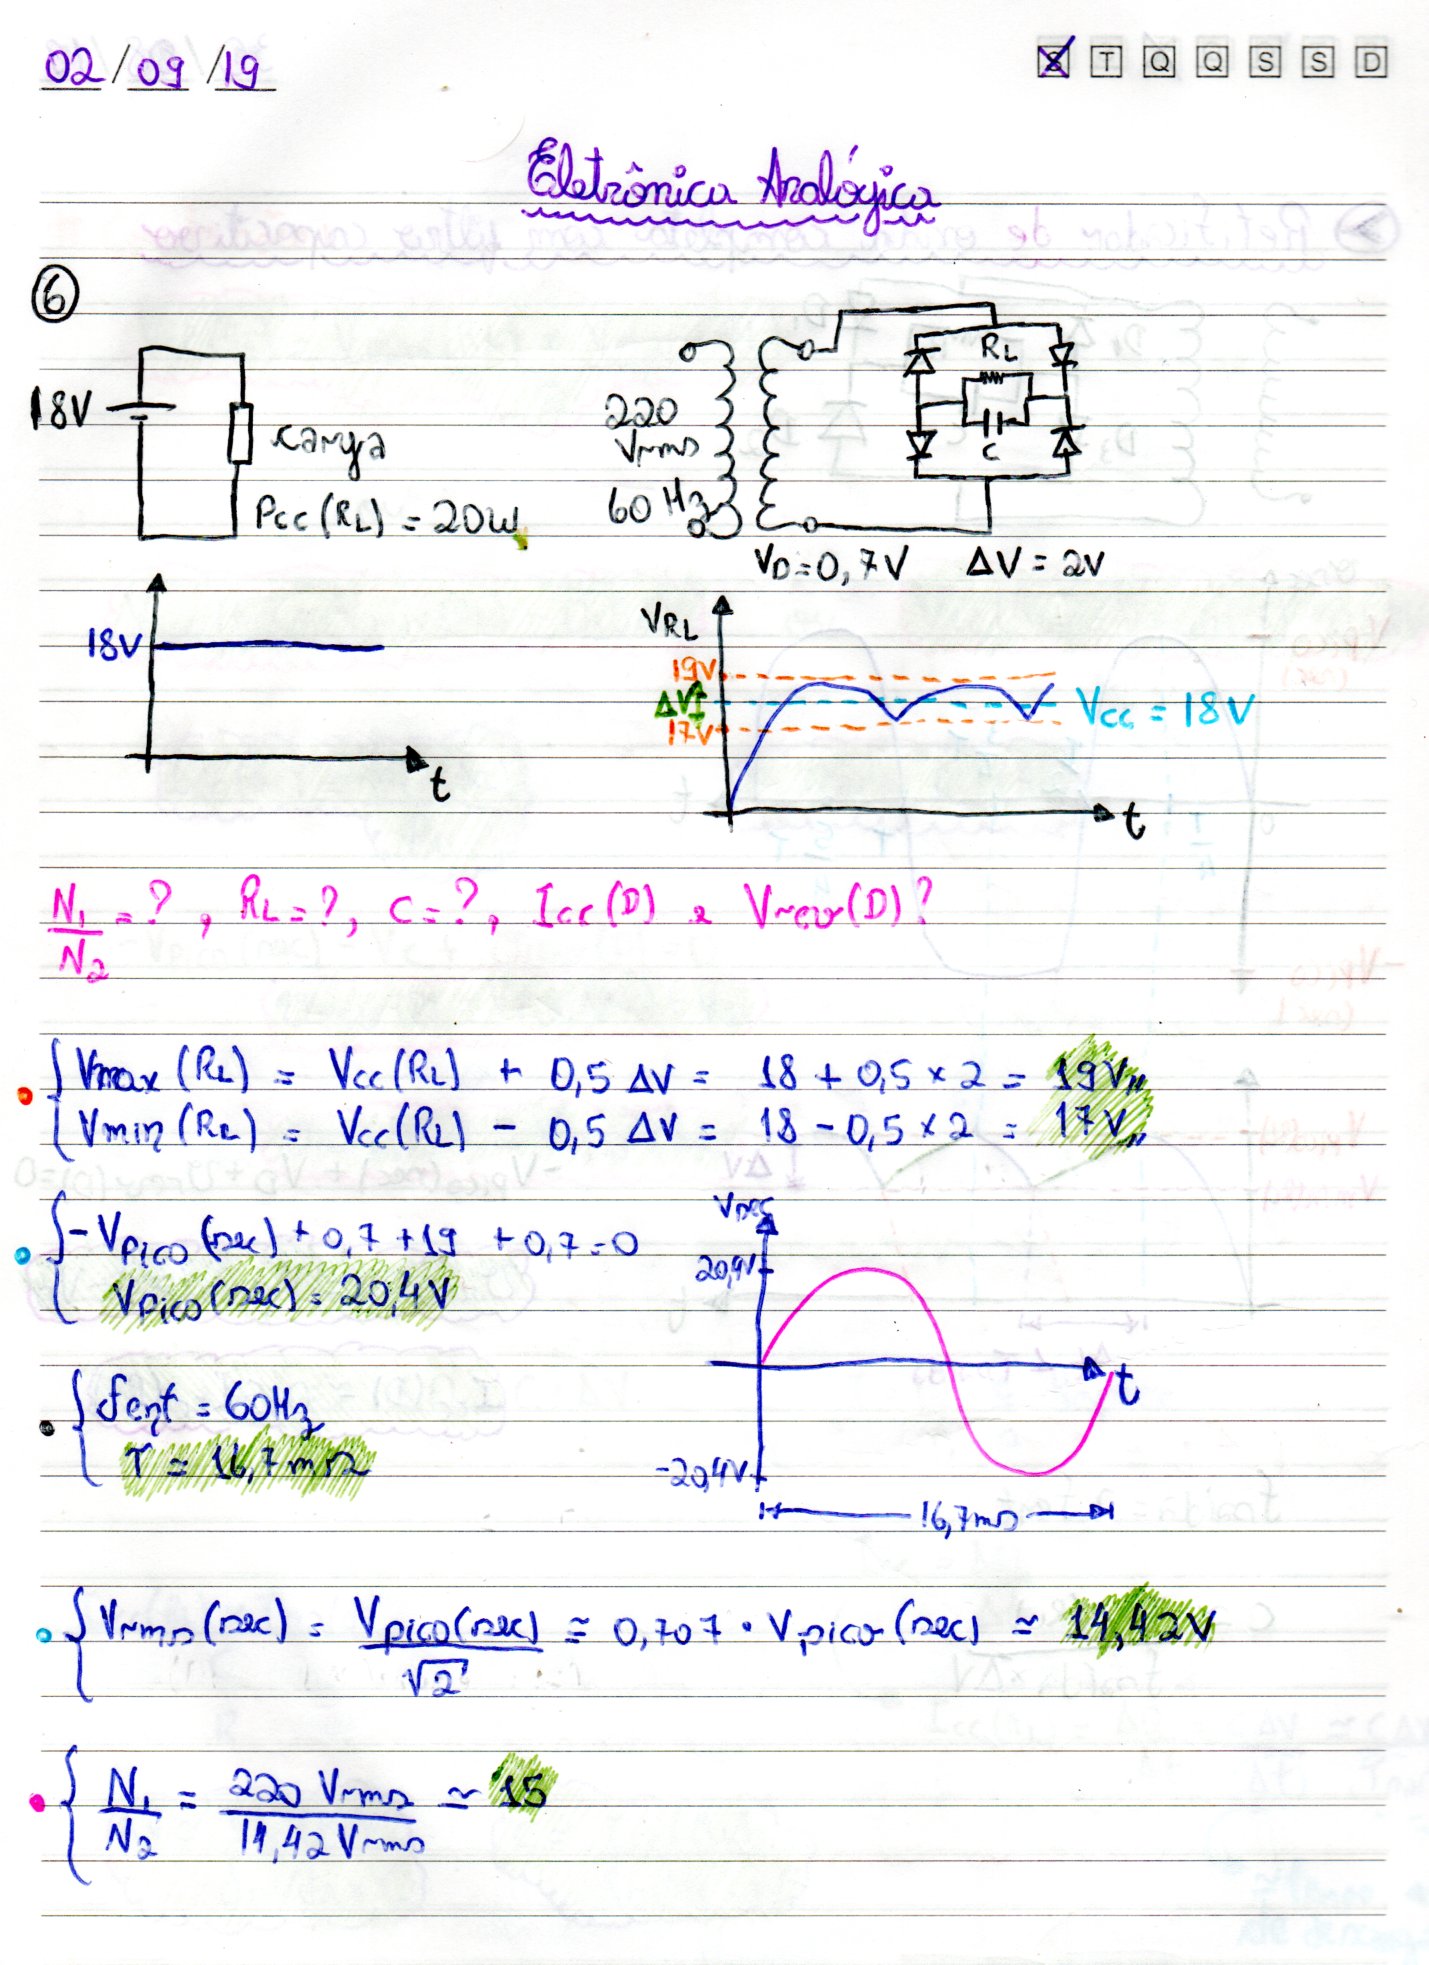 02/09/19
S T Q Q S S D
Eletrônica Analógica
6
18V
carga
Pcc (RL) = 20W
220
Vrms
60 Hz
RL
C
VD=0,7V ΔV = 2V
18V
t
VRL
19V
ΔV
17V
Vcc = 18V
t
N1/N2 = ?, RL = ?, C = ?, Icc (D) e Vrev (D)?
Vmax (RL) = Vcc (RL) + 0,5 ΔV = 18 + 0,5 x 2 = 19V,,
Vmin (RL) = Vcc (RL) - 0,5 ΔV = 18 - 0,5 x 2 = 17V,,
-Vpico (sec) + 0,7 + 19 + 0,7 = 0
Vpico (sec) = 20,4V
Vsec
20,4V
t
-20,4V
16,7ms
fent = 60Hz
T = 16,7 ms
Vrms (sec) = Vpico (sec)/√2 ≅ 0,707 · Vpico (sec) ≅ 14,42V
N1/N2 = 220 Vrms/14,42 Vrms ≃ 15